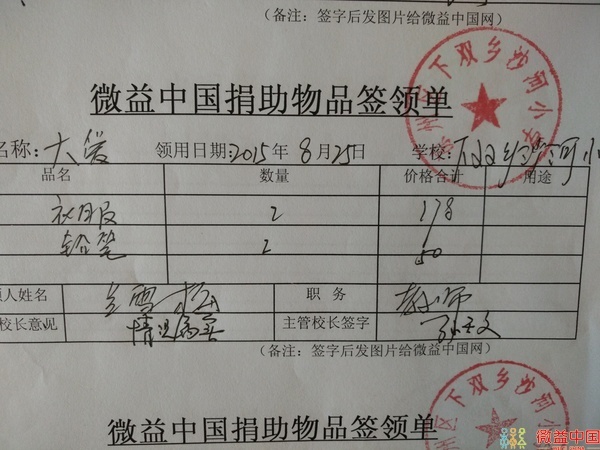 (备注：签字后发图片给微益中国网)
微益中国捐助物品签领单
名称：大爱 领用日期：2015年8月25日 学校：下双乡沙河小
品名 数量 价格合计 用途
衣服 2 178
铅笔 2 50
领人姓名 职务 教师
校长意见 情况属实 主管校长签字
(备注：签字后发图片给微益中国网)
区下双乡沙河小学
微益中国捐助物品签领单
区下双乡沙河小
微益中国